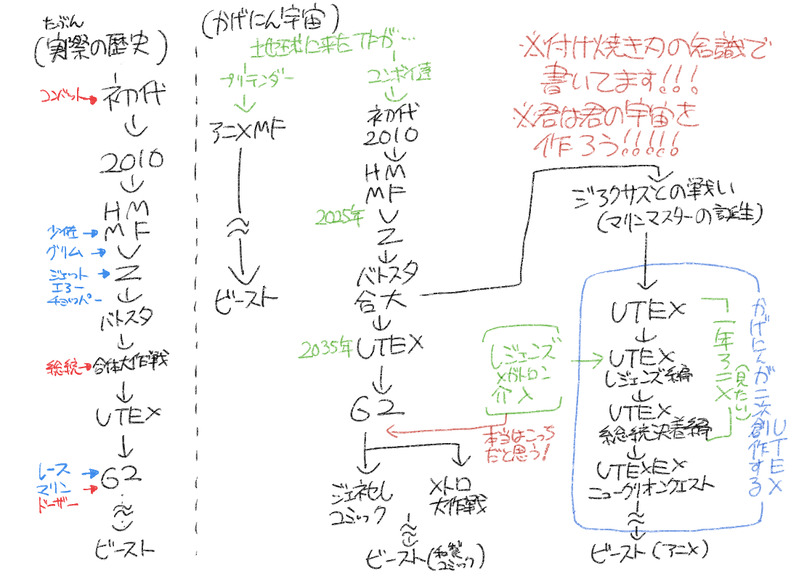 たぶん
(実際の歴史)
コンバット→初代
2010
HM
少佐→MF
グリム→V
ジェット→Z
エろー
チョッパー
バトスタ
総統→合体大作戦
UTEX
レース→G2
マリン
ドーザー
ビースト
(かげにん宇宙)
地球に来たTFが…
プリテンダー
アニメMF
ビースト
コンボイ達
初代
2010
HM
MF
2025年
V
Z
バトスタ
合大
2035年
UTEX
G2
ジェネセレ
コミック
メトロ
大作戦
ビースト(和製
コミック)
※付け焼き刃の知識で
書いてます!!!
※君は君の宇宙を
作ろう!!!!!
ジろクサスとの戦い
(マリンマスターの誕生)
UTEX
レジェンズ
メガトロン
介入
UTEX
レジェンズ編
UTEX
総統決着編
UTEXEX
ニューグリオンクエスト
ビースト(アニメ)
本当はこっち
だと思う!
一年アニメ
(見たい)
かげにんが二次創作する
UTEX